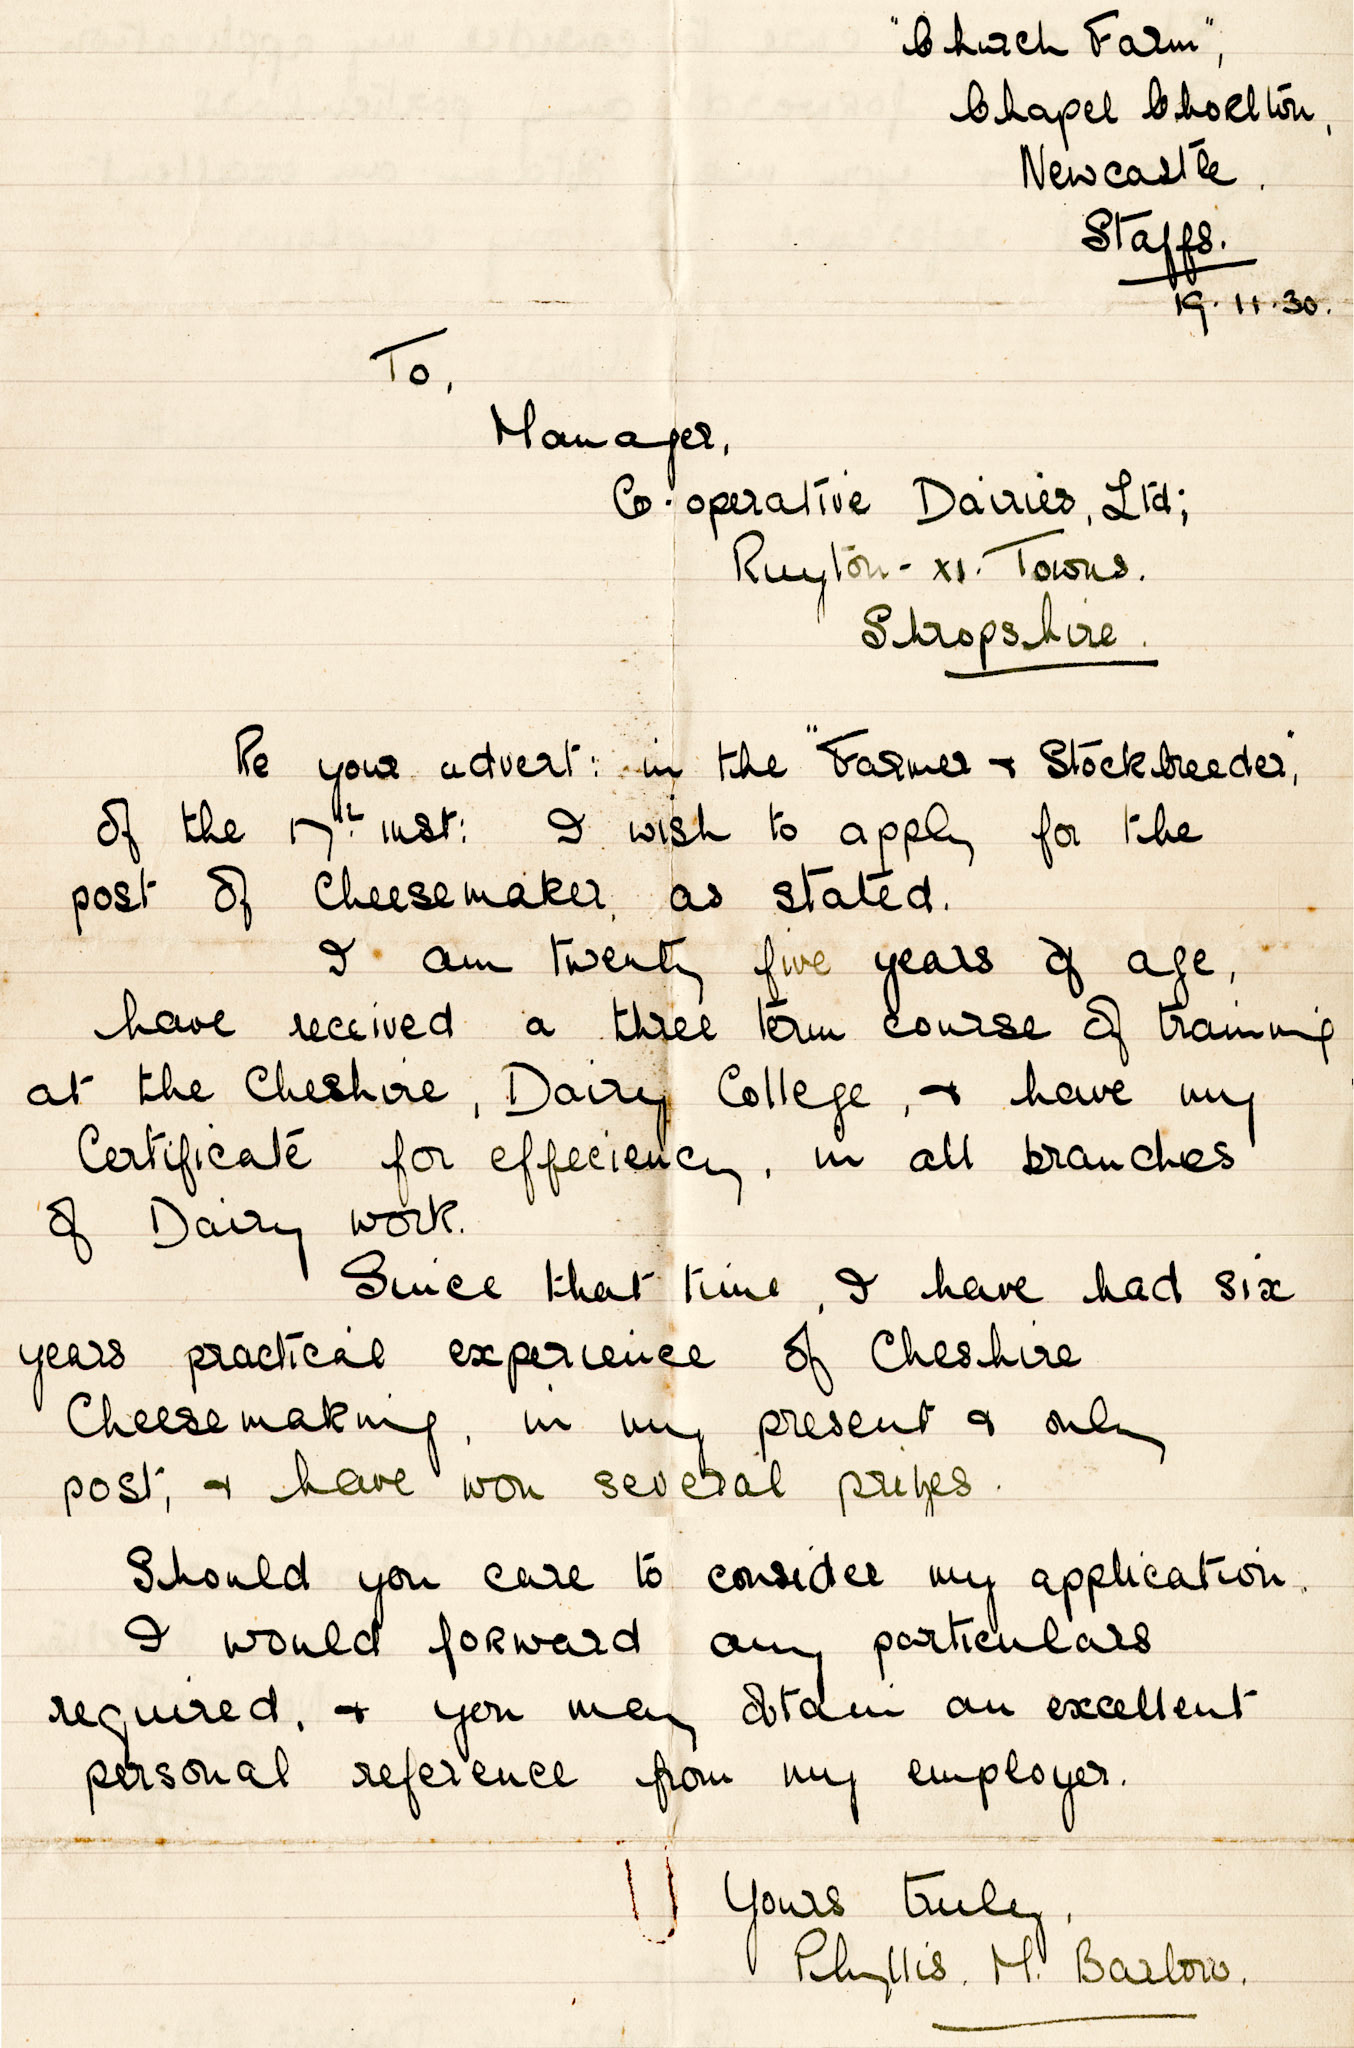 "Church Farm",
Chapel Chorlton,
Newcastle.
Staffs.
19.11.30.
To,
Manager,
Co-operative Dairies, Ltd;
Ruyton-XI.Towns.
Shropshire.
Re your advert: in the "Farmer & Stockbreeder,"
of the 17th inst: I wish to apply for the
post of Cheesemaker, as stated.
I am twenty five years of age,
have received a three term course of training
at the Cheshire, Dairy College, & have my
Certificate for effeciency, in all branches
of Dairy work.
Since that time, I have had six
years practical experience of Cheshire
Cheesemaking, in my present & only
post, & have won several prizes.
Should you care to consider my application.
I would forward any particulars
required, & you may obtain an excellent
personal reference from my employer.
Yours truly,
Phyllis. M. Barlow.